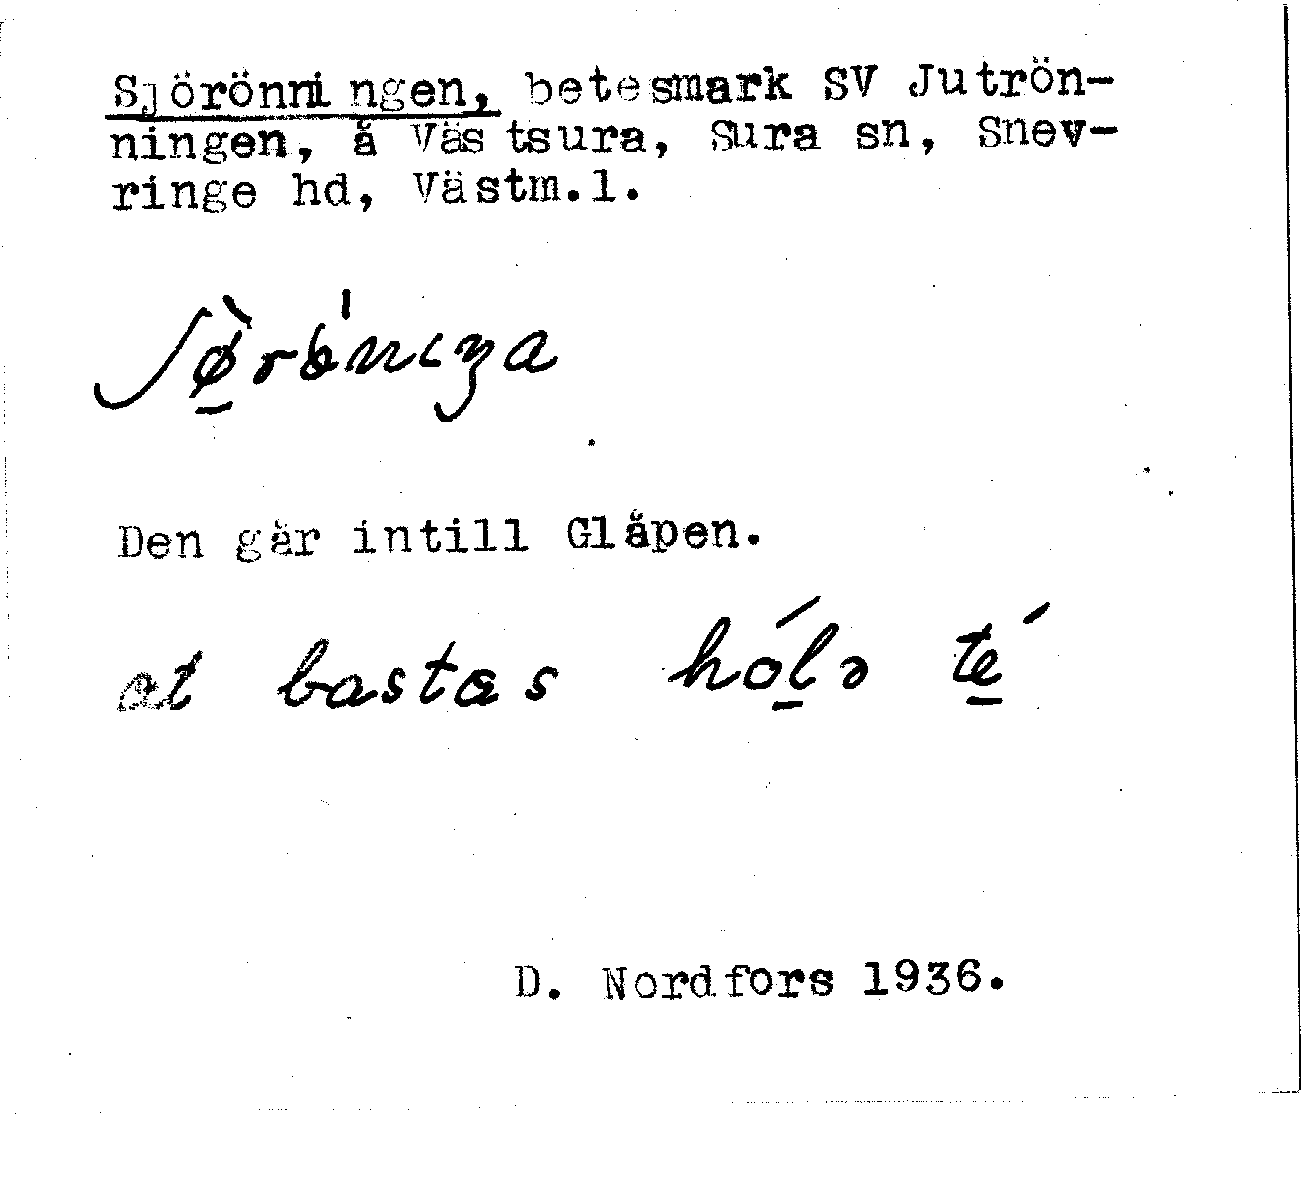 Sjörönningen, betesmark SV Jutrön-
ningen, å Västsura, Sura sn, Snev-
ringe hd, Västm.l.
Den går intill Glåpen.
at bastas hólə té
D. Nordfors 1936.